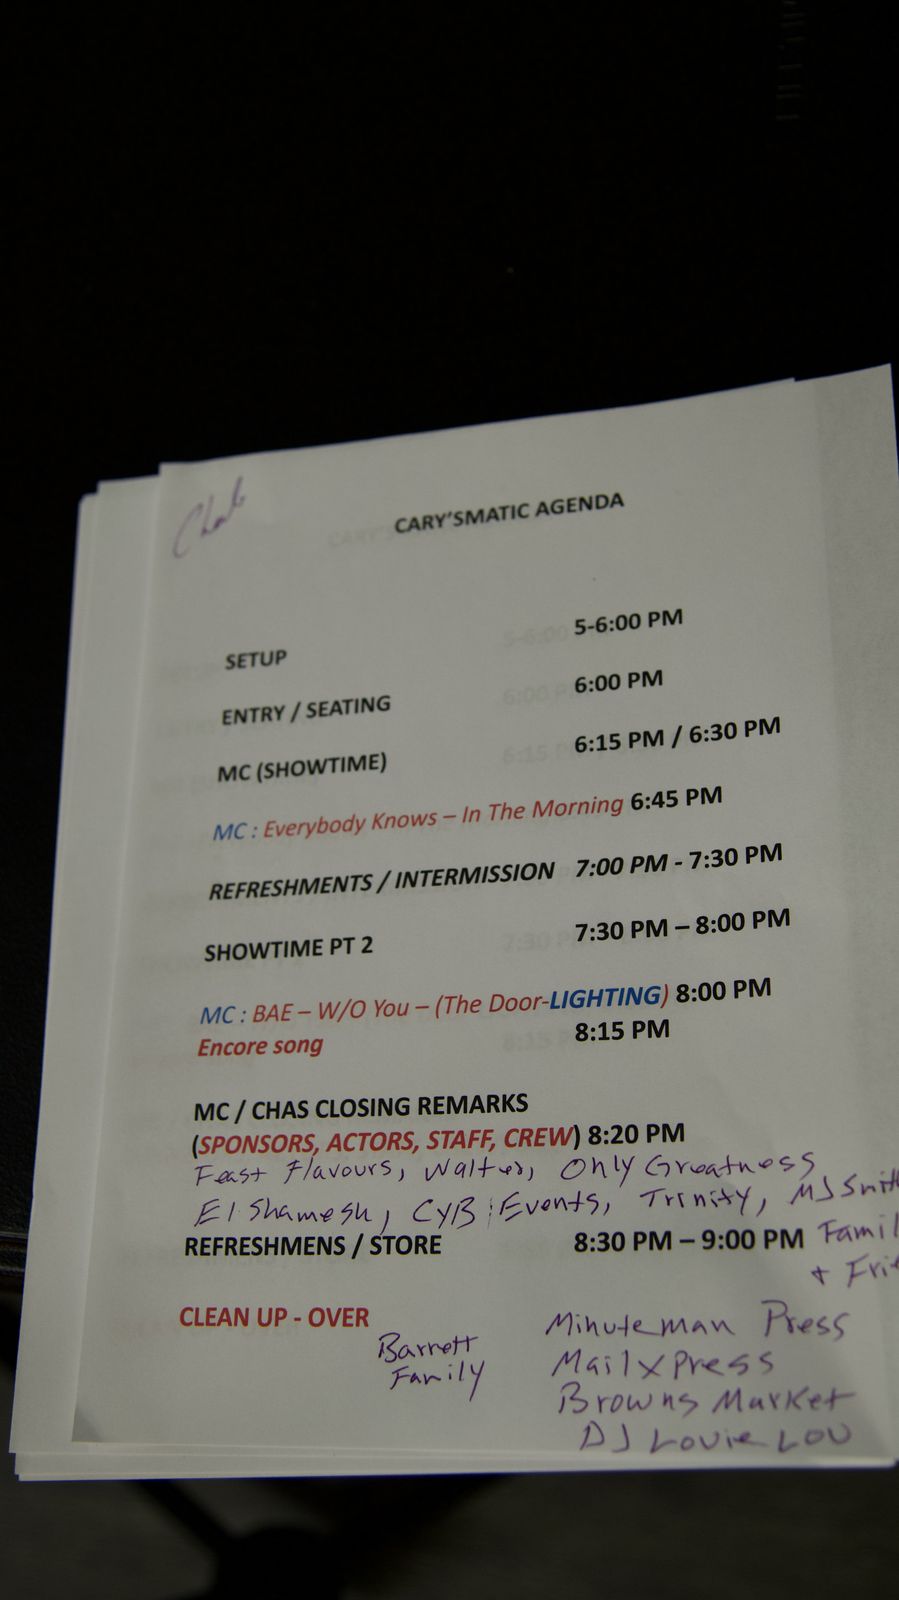 Chas
CARY'SMATIC AGENDA
SETUP 5-6:00 PM
ENTRY / SEATING 6:00 PM
MC (SHOWTIME) 6:15 PM / 6:30 PM
MC : Everybody Knows – In The Morning 6:45 PM
REFRESHMENTS / INTERMISSION 7:00 PM - 7:30 PM
SHOWTIME PT 2 7:30 PM – 8:00 PM
MC : BAE – W/O You – (The Door-LIGHTING) 8:00 PM
Encore song 8:15 PM
MC / CHAS CLOSING REMARKS
(SPONSORS, ACTORS, STAFF, CREW) 8:20 PM
Feast Flavours, Walter, Only Greatness
El Shamesh, CYB Events, Trinity, MJ Smith
REFRESHMENS / STORE 8:30 PM – 9:00 PM Famil
+ Frie
CLEAN UP - OVER
Barrett
Family
Minuteman Press
MailxPress
Browns Market
DJ Louie Lou